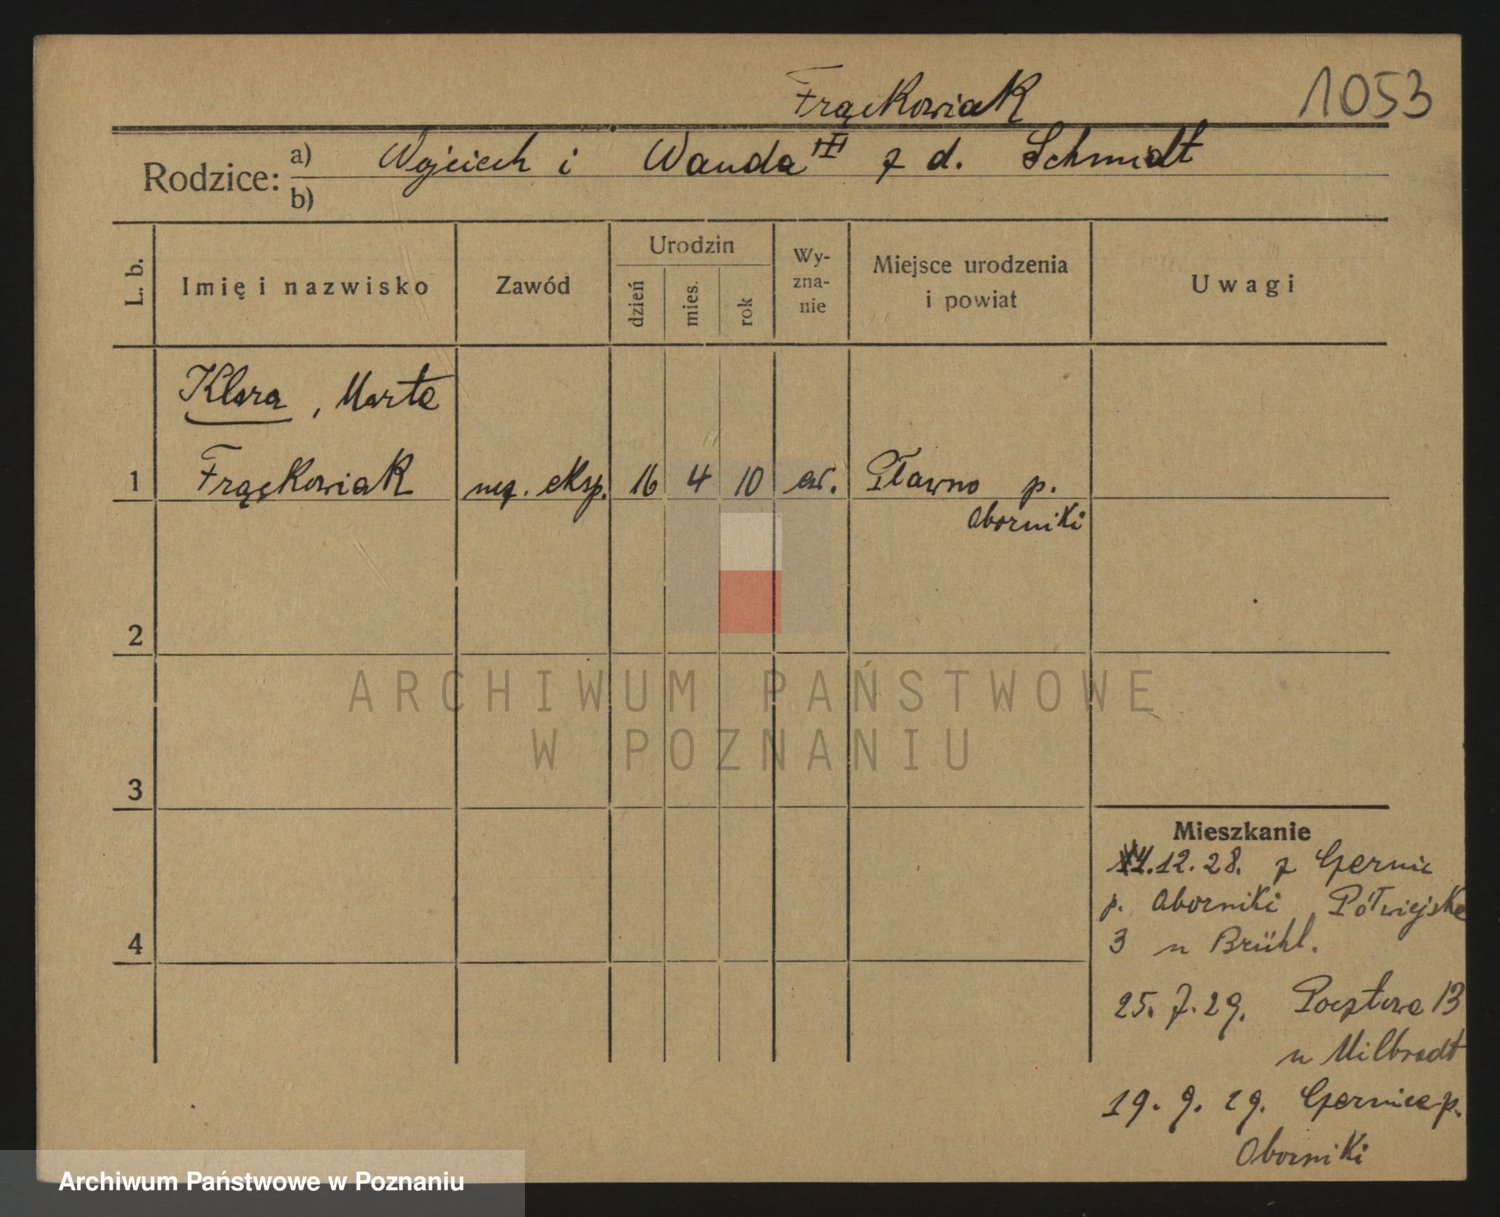 Frąckowiak 1053
Rodzice: a) Wojciech i Wanda z d. Schmidt
b)
L. b. Imię i nazwisko Zawód Urodzin dzień mies. rok Wy-
zna-
nie Miejsce urodzenia
i powiat Uwagi
Klara, Marta
1 Frąckowiak eksp. 16 4 10 ew. Pławno p.
Oborniki
2
ARCHIWUM PAŃSTWOWE
W POZNANIU
3
Mieszkanie
12.28. z
p. Oborniki Półwiejska
4
3 u Brühl.
25.7.29. Pocztowa 13
u Milbradt
19.9.29. p.
Oborniki
Archiwum Państwowe w Poznaniu